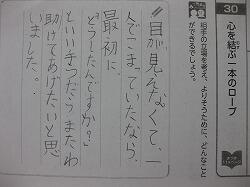 30
心を結ぶ一本のロープ
相手の立場を考え、よりそうために、どんなこと
ができるでしょう。
目が見えなくて、一
人でこまっていたなら、
最初に、
「どうしたんですか?」
といいきつだうまたわ
助けてあげたいと思
いました。